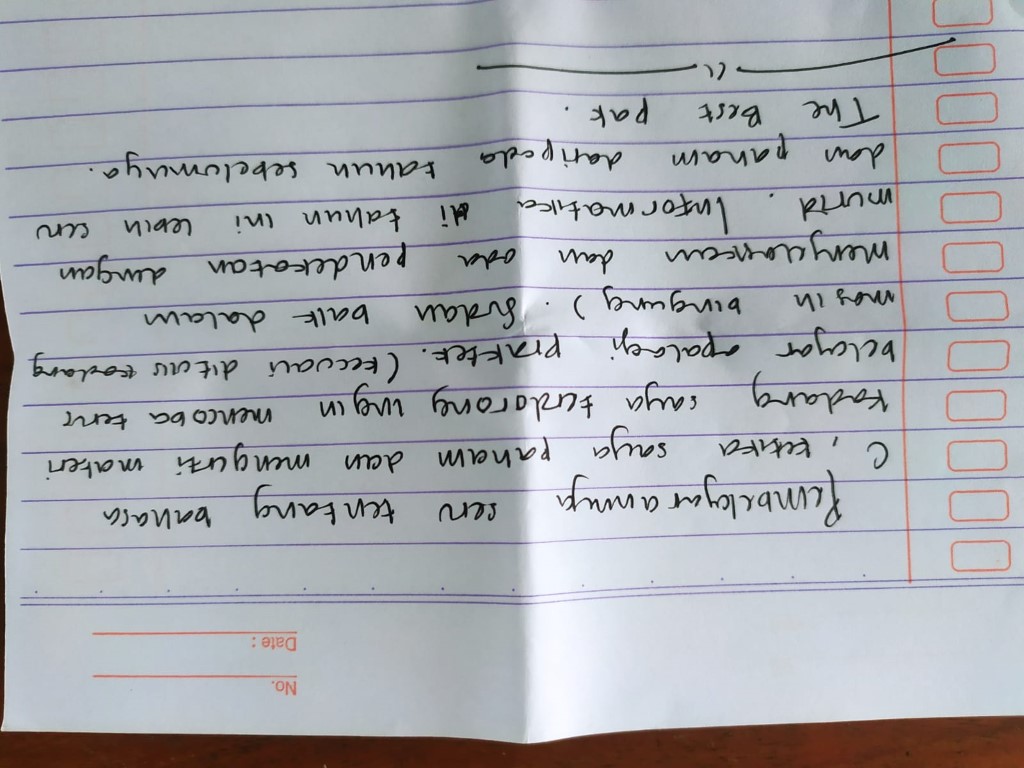 No.
Date :
Pembelajarannya seru tentang bahasa
C, ketika saya paham dan mengerti materi
kadang saya terdorong ingin mencoba terus
belajar apalagi praktek. (kecuali ditau kadang
masih bingung). Sudah baik dalam
menjelaskan dan ada pendekatan dengan
murid. Informatika di tahun ini lebih seru
dan paham daripada tahun sebelumnya.
The Best pak.